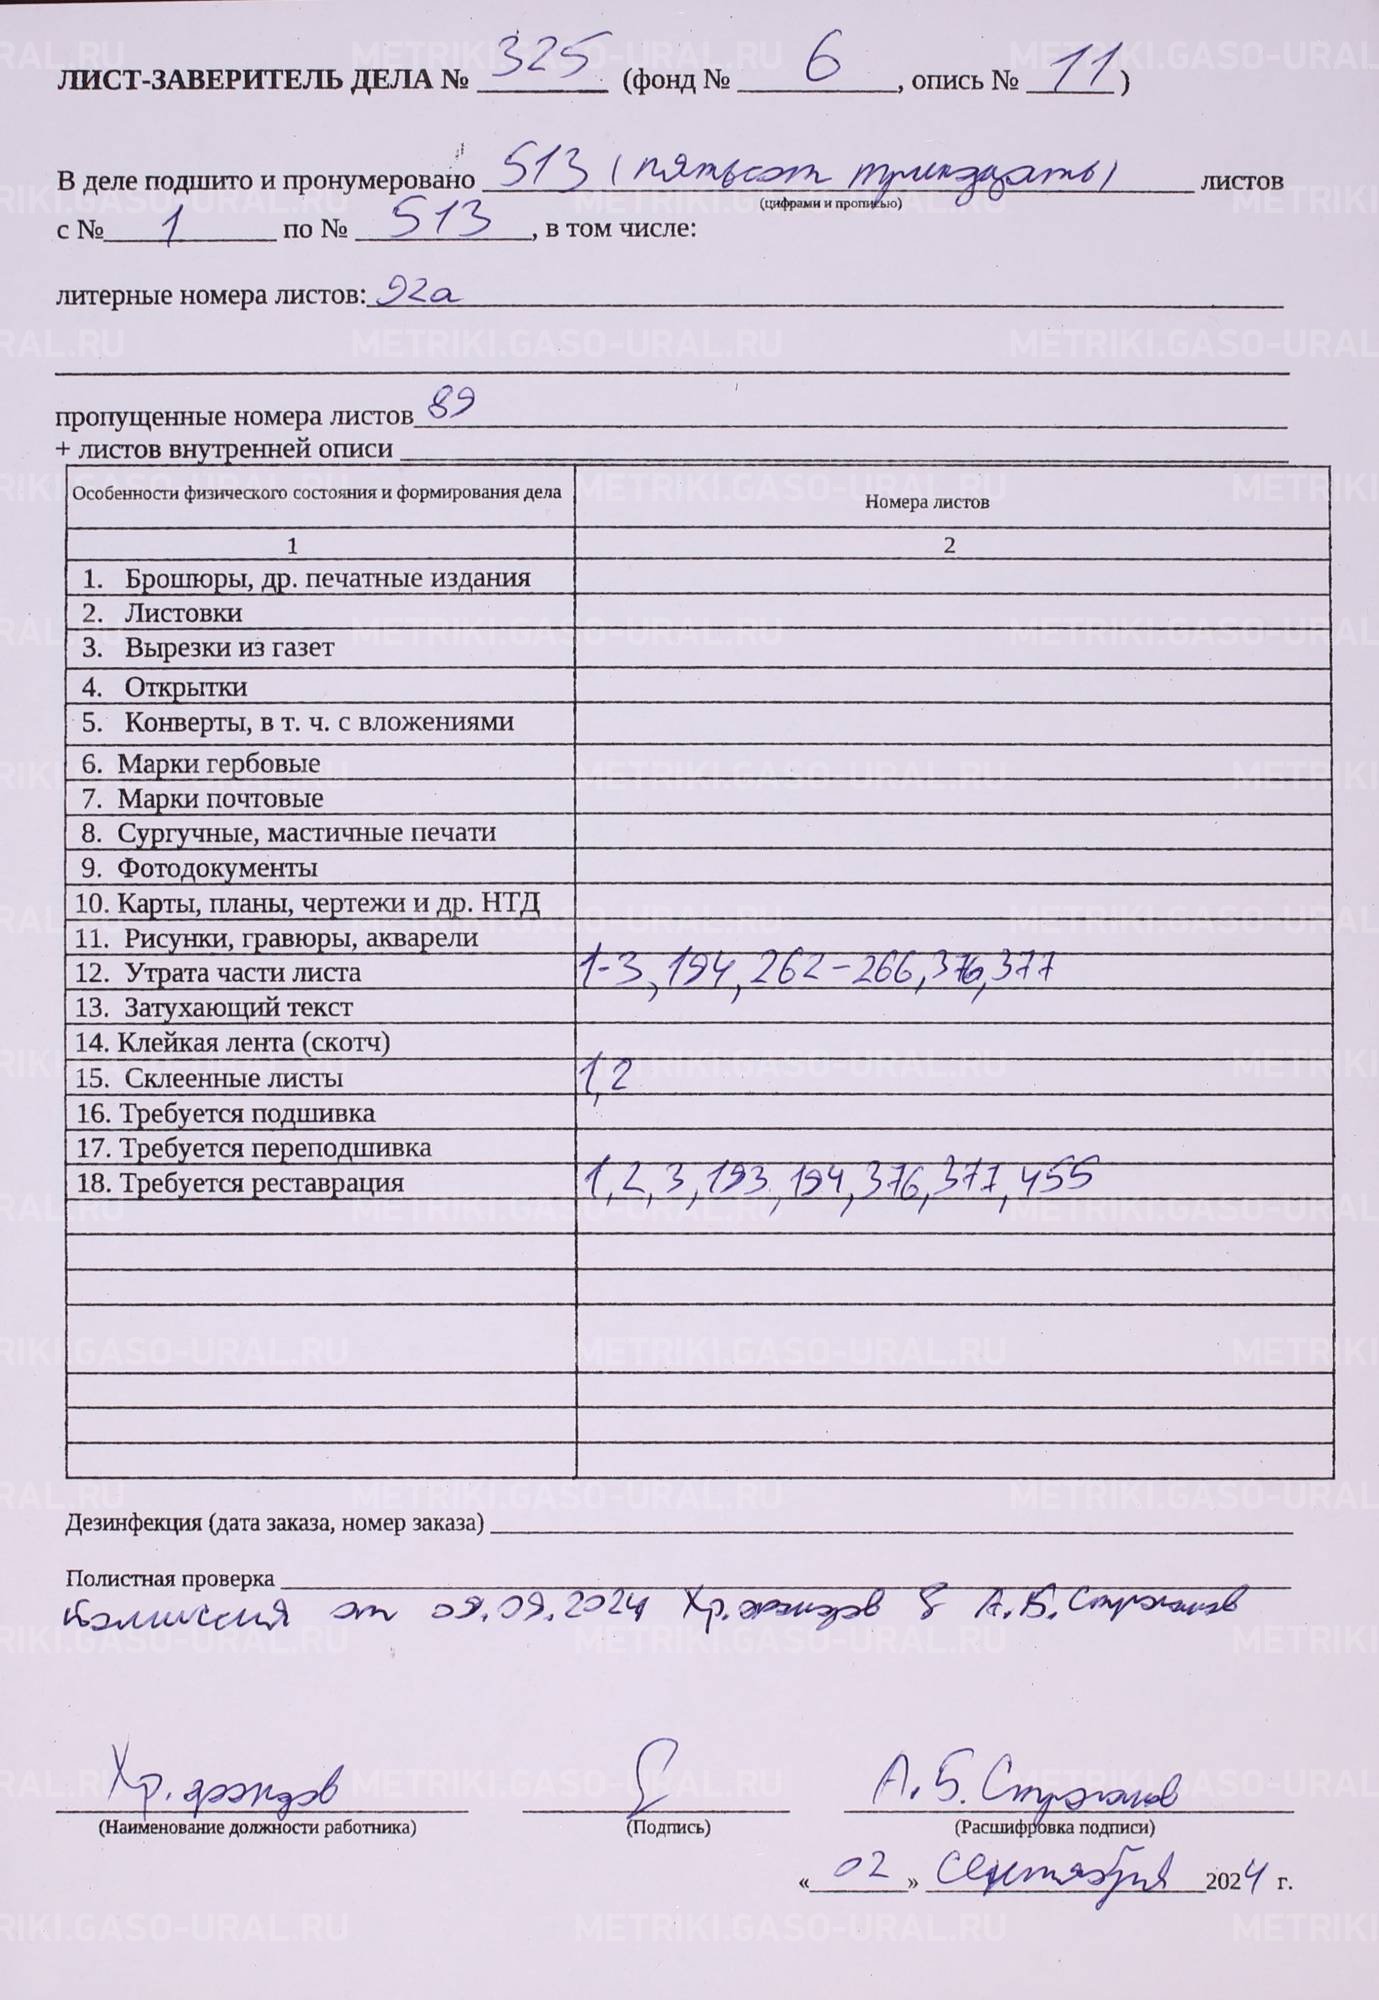 ЛИСТ-ЗАВЕРИТЕЛЬ ДЕЛА № 325 (фонд № 6, опись № 11)
В деле подшито и пронумеровано 513 (пятьсот тринадцать) листов
(цифрами и прописью)
с № 1 по № 513, в том числе:
литерные номера листов: 92а
пропущенные номера листов 89
+ листов внутренней описи
Особенности физического состояния и формирования дела Номера листов
1 2
1. Брошюры, др. печатные издания
2. Листовки
3. Вырезки из газет
4. Открытки
5. Конверты, в т. ч. с вложениями
6. Марки гербовые
7. Марки почтовые
8. Сургучные, мастичные печати
9. Фотодокументы
10. Карты, планы, чертежи и др. НТД
11. Рисунки, гравюры, акварели
12. Утрата части листа 1-3, 194, 262-266, 376, 377
13. Затухающий текст
14. Клейкая лента (скотч)
15. Склеенные листы 1, 2
16. Требуется подшивка
17. Требуется переподшивка
18. Требуется реставрация 1, 2, 3, 193, 194, 376, 377, 455
Дезинфекция (дата заказа, номер заказа)
Полистная проверка
от 09.09.2024 Хр. фондов А.Б.
Хр. фондов А.Б.
(Наименование должности работника) (Подпись) (Расшифровка подписи)
« 02 » сентября 2024 г.
METRIKI.GASO-URAL.RU